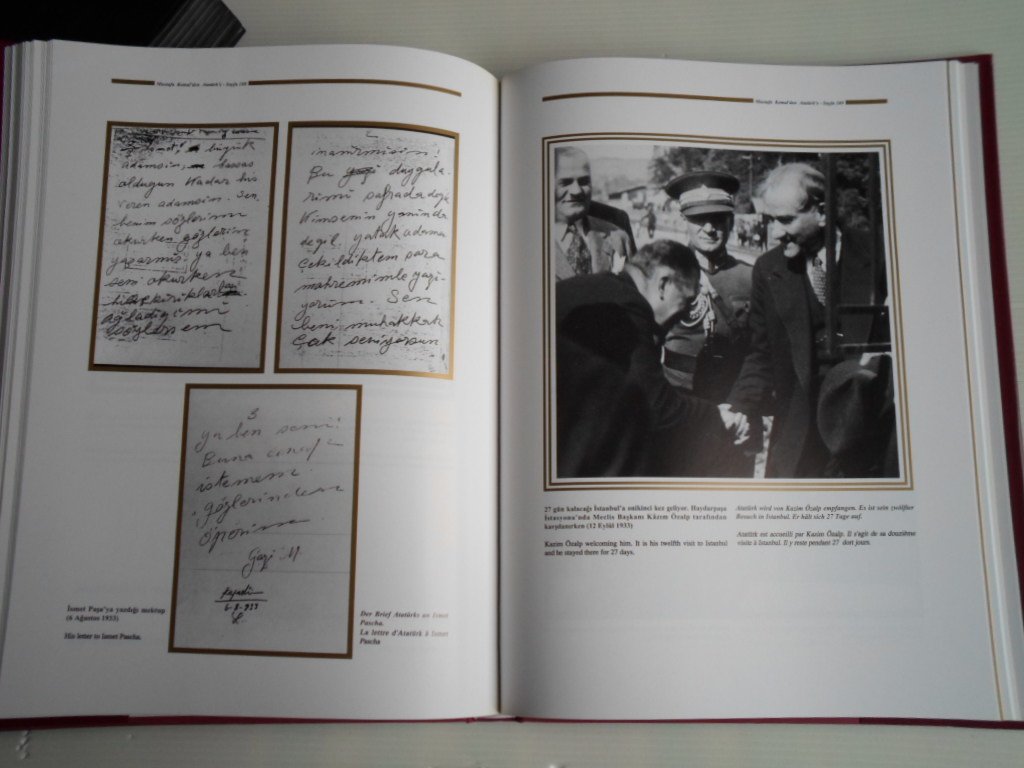 Mustafa Kemal'den Atatürk'e - Sayfa 188
büyük
adamsın, hassas
olduğun kadar his
veren adamsın. Sen,
benim sözlerimi
okurken gözlerin
yaşarmış; ya ben
seni okurken!
hıçkırıklarla
ağladığımı
söylersem
2
inanırmısın!
Bu duygula-
rımı sofrada değil
kimsenin yanında
değil, yatak odama
çekildikten sora
mahremimle yazı-
yorum. Sen
beni muhakkak
çok seviyorsun
3
ya ben seni!
Buna cevap
istemem
gözlerinden
öperim
Gazi M
6-8-933
İsmet Paşa'ya yazdığı mektup
(6 Ağustos 1933)
His letter to İsmet Pascha.
Der Brief Atatürks an İsmet
Pascha.
La lettre d'Atatürk à İsmet
Pascha
Mustafa Kemal'den Atatürk'e - Sayfa 189
27 gün kalacağı İstanbul'a onikinci kez geliyor. Haydarpaşa
İstasyonu'nda Meclis Başkanı Kâzım Özalp tarafından
karşılanırken (12 Eylül 1933)
Kazim Özalp welcoming him. It is his twelfth visit to Istanbul
and he stayed there for 27 days.
Atatürk wird von Kazim Özalp empfangen. Es ist sein zwölfter
Besuch in Istanbul. Er hält sich 27 Tage auf.
Atatürk est accueilli par Kazim Özalp. Il s'agit de sa douzième
visite à Istanbul. Il y reste pendant 27 dort jours.